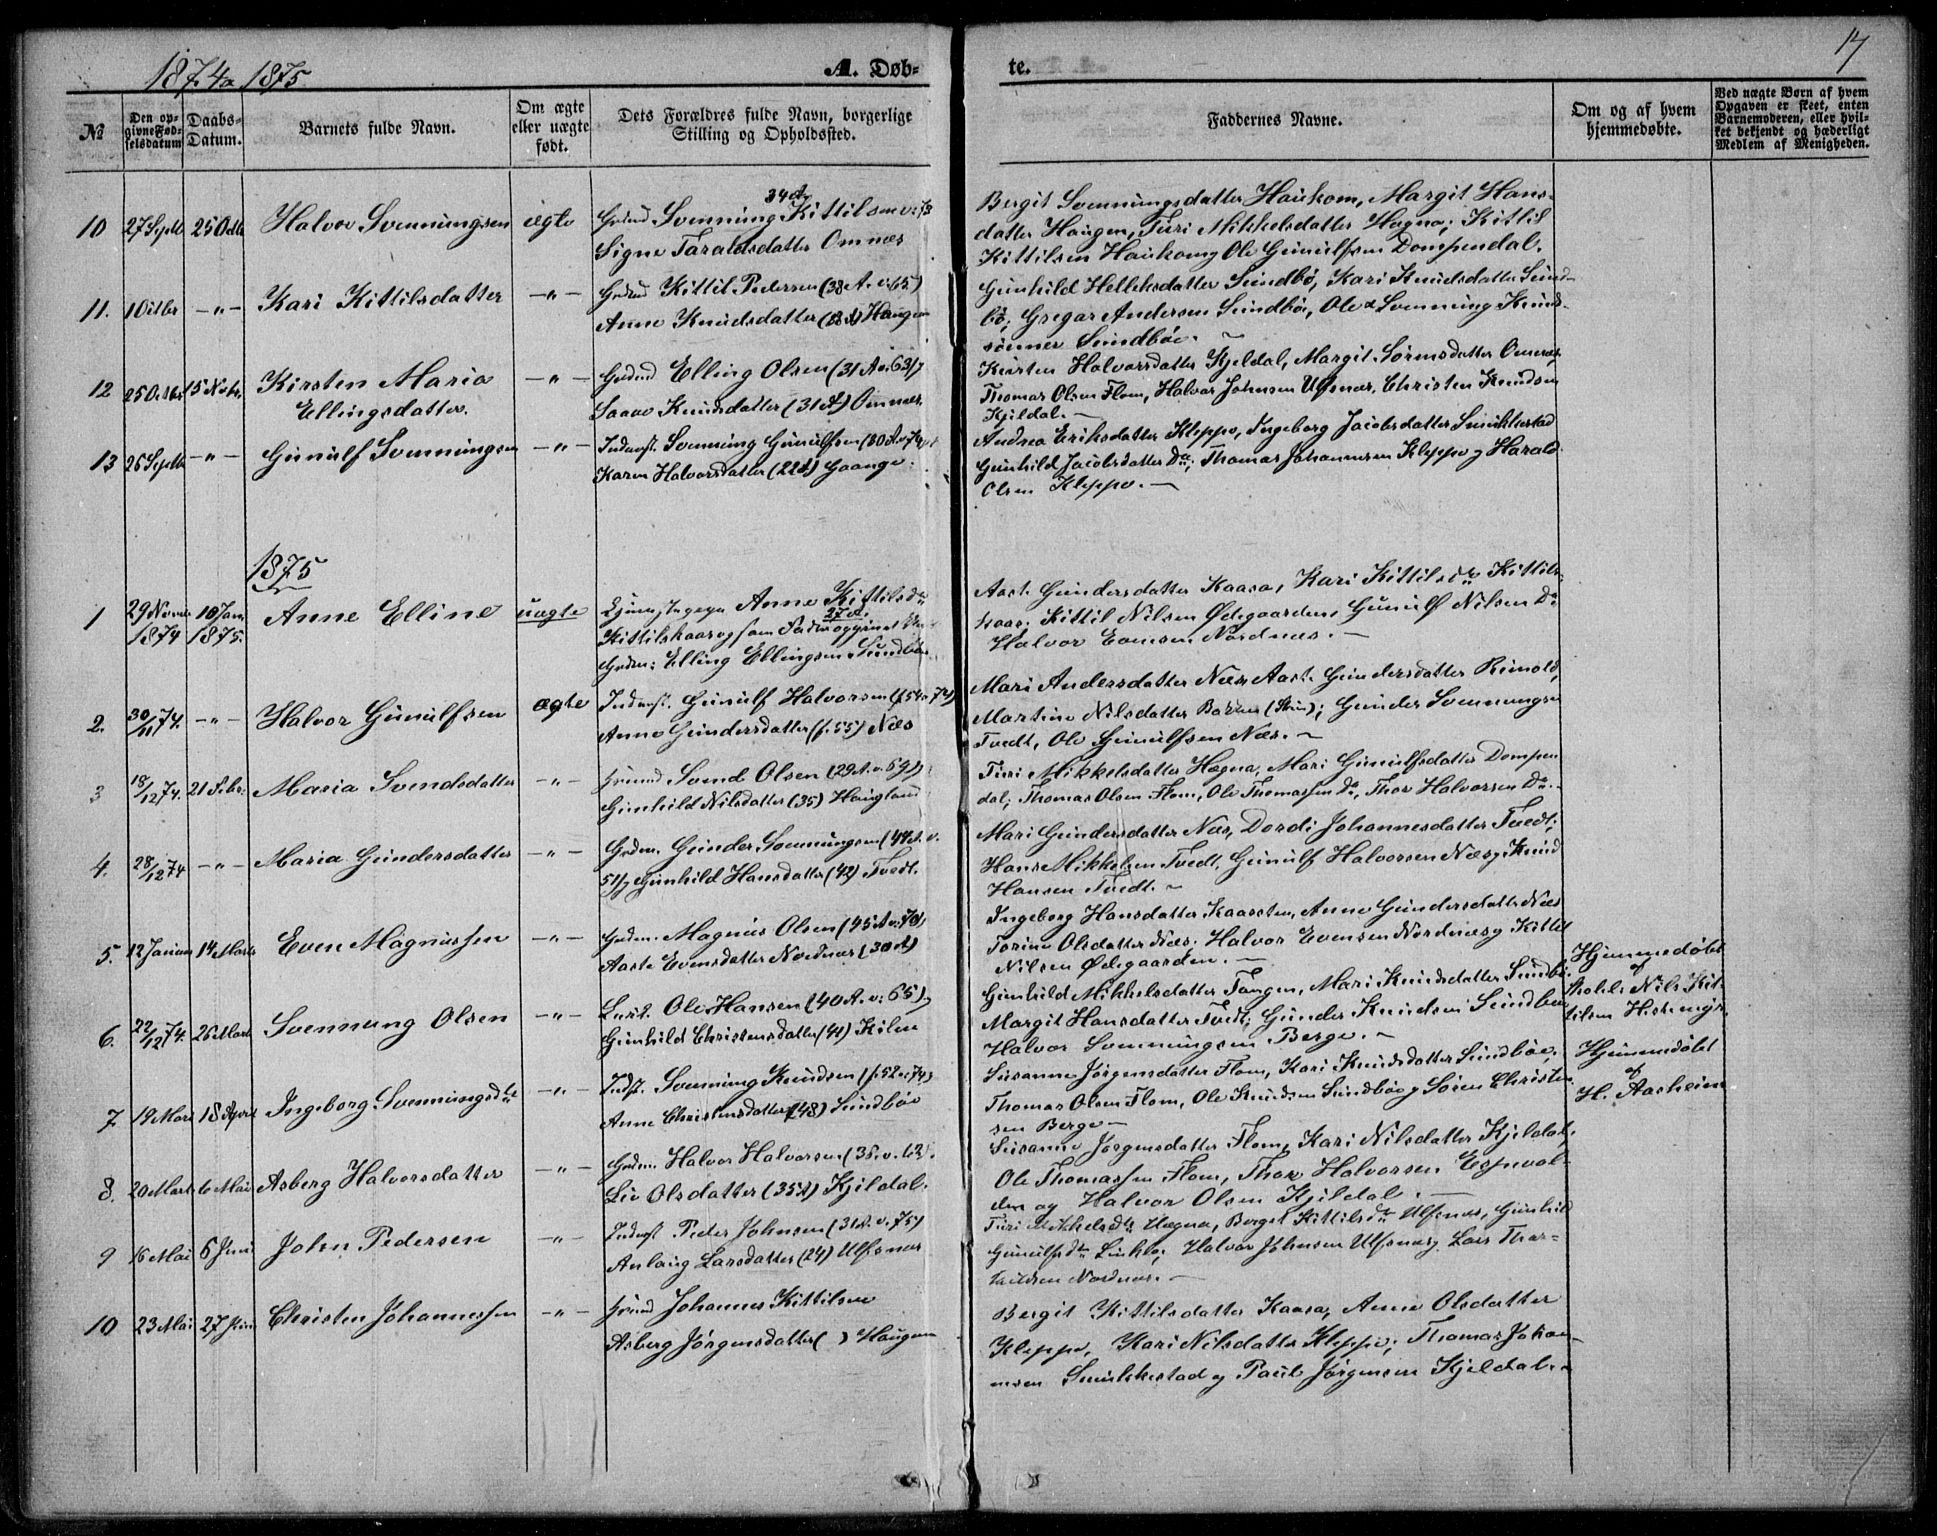 1874 & 1875
A. Døb-
te.
17
№
Den op-
givne Fød-
selsdatum
Daabs-
Datum.
Barnets fulde Navn.
Om ægte
eller uægte
født.
Dets Forældres fulde Navn, borgerlige
Stilling og Opholdssted.
Faddernes Navne.
Om og af hvem
hjemmedøbte.
Ved uægte Børn af hvem
Opgaven er skeet, enten
Barnemoderen, eller hvil-
ket bekjendt og hæderligt
Medlem af Menigheden.
10 27 Septb 25 Octb Halvor Svennungsen ægte
34 A
Grdmd Svennung Kittilsen v: 73
Signe Taraldsdatter Omnæs
Bergit Svennungsdatter Haukom, Margit Hans-
datter Haugen, Turi Mikkelsdatter Hægna; Kittil
Kittilsen Haukom og Ole Gunulfsen Dompendal.
11. 1 Octbr -"- Kari Kittilsdatter -"-
Grdmd Kittil Pedersen (38 A. v: 65)
Anne Knudsdatter (38 A) Haugen
Gunhild Helleksdatter Sundbø, Kari Knudsdatter Sund-
bø; Gregar Andersen Sundbø, Ole & Svennung Knud-
sønner Sundbøe.
12 25 Octbr 15 Novbr. Kirsten Maria
Ellingsdatter.
-"-
Grdmd Elling Olsen (31 A v. 63)
Saave Knudsdatter (31 A) Omnæs.
Kirsten Halvorsdatter Kjeldal, Margit Sørensdatter Omnæs,
Thomas Olsen Flom, Halvor Johnsen Ulfsnæs, Christen Knudsen
Kjeldal.
13 26 Septb -"- Gunulf Svennungsen -"-
Inderst. Svennung Gunulfsen (30 A. v. 74)
Karen Halvorsdatter (22 A) Gaange.
Andrea Eriksdatter Kleppo, Ingeborg Jacobsdatter Smukkestad
Gunhild Jacobsdatter Do; Thomas Johannesen Kleppo og Harald
Olsen Kleppo.
1875
1 29 Novb 1874 10 Jan. 1875. Anne Elline uægte
Anne Kittilsdtr
27 A.
Kittilshaas og som Fader opgivet
Grdm: Elling Ellingsen Sundbøe
Aast Gundersdatter Kaasa, Kari Kittilsdtr Kittils-
haas; Kittil Nilsen Ødegaarden, Gunulf Nilsen Do
Halvor Evensen Nordnæs.
2. 30/11 74. -"- Halvor Gunulfsen ægte
Inderst. Gunulf Halvorsen (f. 54 v. 74)
Anne Gundersdatter (f. 55) Næs
Mari Andersdatter Næs, Aast. Gundersdatter Rimold,
Martine Nilsdatter Bakken (Skien); Gunder Svennungsen
Tvedt, Ole Gunulfsen Næs.
3 18/12 74. 21 Febr. Maria Svendsdatter -"-
Grdmd Svend Olsen (29 A. v. 69)
Gunhild Nilsdatter (35) Haugland
Turi Mikkelsdatter Hægna, Mari Gunulfsdatter Dompen
dal; Thomas Olsen Flom, Ole Thomassen Do, Thor Halvorsen Do.
4. 28/12 74 -"- Maria Gundersdatter -"-
Grdm. Gunder Svennungsen (44 A. v.
51) Gunhild Hansdatter (42) Tvedt.
Mari Gundersdatter Næs, Dordi Johannesdatter Tvedt;
Hans Mikkelsen Tvedt, Gunulf Halvorsen Næs og Knud
Hansen Tvedt.
5. 12 Januar 14 Marts Even Magnussen -"-
Grdm. Magnus Olsen (45 A v. 70)
Aaste Evensdatter Nordnæs (30 A)
Ingeborg Hansdatter Kaasen, Anne Gundersdatter Næs
Torine Olsdatter Næs; Halvor Evensen Nordnæs og Kittil
Nilsen Ødegaarden.
6. 22/12 74. 26 Marts Svennung Olsen -"-
Ole Hansen (40 A. v: 65)
Gunhild Christensdatter (41) Kilen
Gunhild Mikkelsdatter Tangen, Mari Knudsdatter Sundbø,
Margit Hansdatter Tvedt; Gunder Knudsen Sundbøe
Halvor Svennungsen Berge.
Hjemmedøbt
af
Nils Kit-
tilsen
7. 19 Mars 18 April Ingeborg Svennungsdtr -"-
Indst. Svennung Knudsen (f. 52 v. 74)
Anne Christensdatter (48) Sundbøe
Susanne Jørgensdatter Flom, Kari Knudsdatter Sundbøe;
Thomas Olsen Flom, Ole Knudsen Sundbøe og Søren Christen
sen Berge
Hjemmedøbt
af
H. Aasheim
8. 20 Marts 6 Mai Asberg Halvorsdatter -"-
Grdm. Halvor Halvorsen (35. v. 62).
Liv Olsdatter (35 A) Kjeldal.
Susanne Jørgensdatter Flom, Kari Nilsdatter Kjeldal,
Ole Thomassen Flom, Thor Halvorsen Espevol-
den og Halvor Olsen Kjeldal.
9 16 Mai 6 Juni John Pedersen -"-
Inderst Peder Johnsen (31 A. v. 75)
Anlaug Larsdatter (24) Ulfsnæs
Turi Mikkelsdtr Hægna, Berget Kittilsdtr Ulfsnæs, Gunhild
Gunulfsdtr; Halvor Johnsen Ulfsnæs og Lars Thor-
kildsen Nordnæs.
10 23 Mai 27 Juni Christen Johannessen -"-
Grdmd Johannes Kittilsen
Asberg Jørgensdatter ( ) Haugen
Bergit Kittilsdatter Kaasa, Anne Olsdatter
Kleppo, Kari Nilsdatter Kleppo; Thomas Johan-
nesen Smukkestad og Paul Jørgensen Kjeldal.